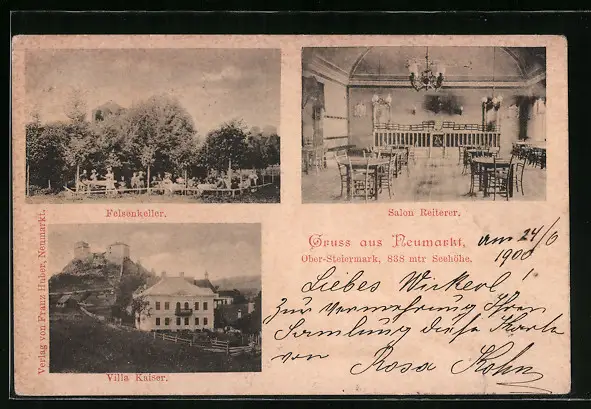 Felsenkeller.
Salon Reiterer.
Gruss aus Neumarkt,
Ober-Steiermark, 838 mtr Seehöhe.
am 24/6
1900
Liebes Wickerl!
Zur Vermehrung Ihrer
Samlung diese Karte
von Rosa Kohn
Villa Kaiser.
Verlag von Franz Huber, Neumarkt.